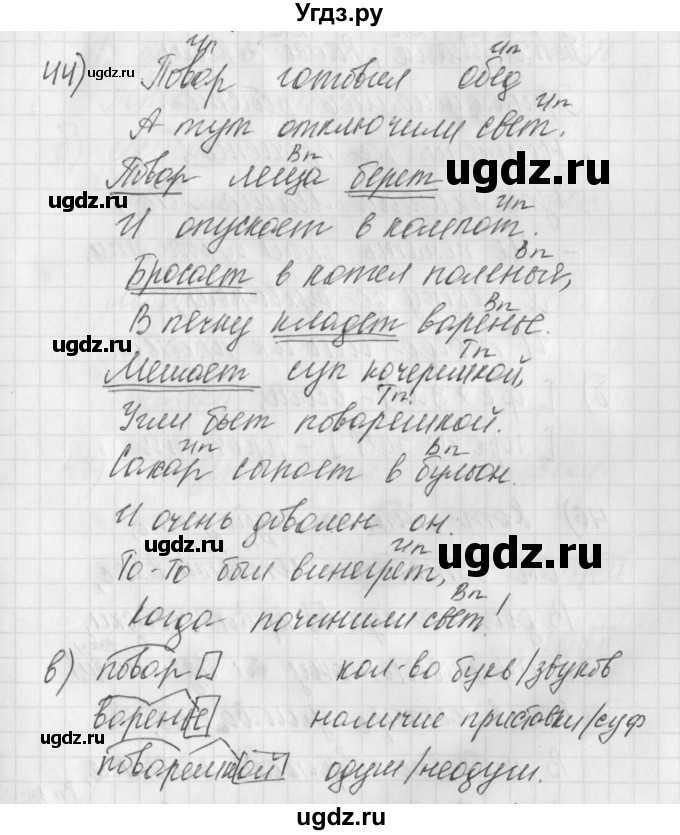 Угдз.ру
44) Повар готовил обед
Ип Ип
А тут отключили свет.
Ип
Повар леща берет
Вп
И опускает в компот.
Ип
Бросает в котел поленья,
Вп
В печку кладет варенье.
Вп
Мешает суп кочерешкой,
Тп
Угли бьет поварешкой.
Тп
Сахар сыпает в бульон.
Ип Вп
И очень доволен он.
То-то был винегрет,
Ип
Когда починили свет!
Вп
в) повар кол-во букв/звуков
варенье наличие приставки/суф
поварешкой одуш/неодуш.
ugdz.ru
ugdz.ru
ugdz.ru
ugdz.ru
ugdz.ru
ugdz.ru
ugdz.ru
ugdz.ru
ugdz.ru
ugdz.ru
ugdz.ru
Угдз.ру